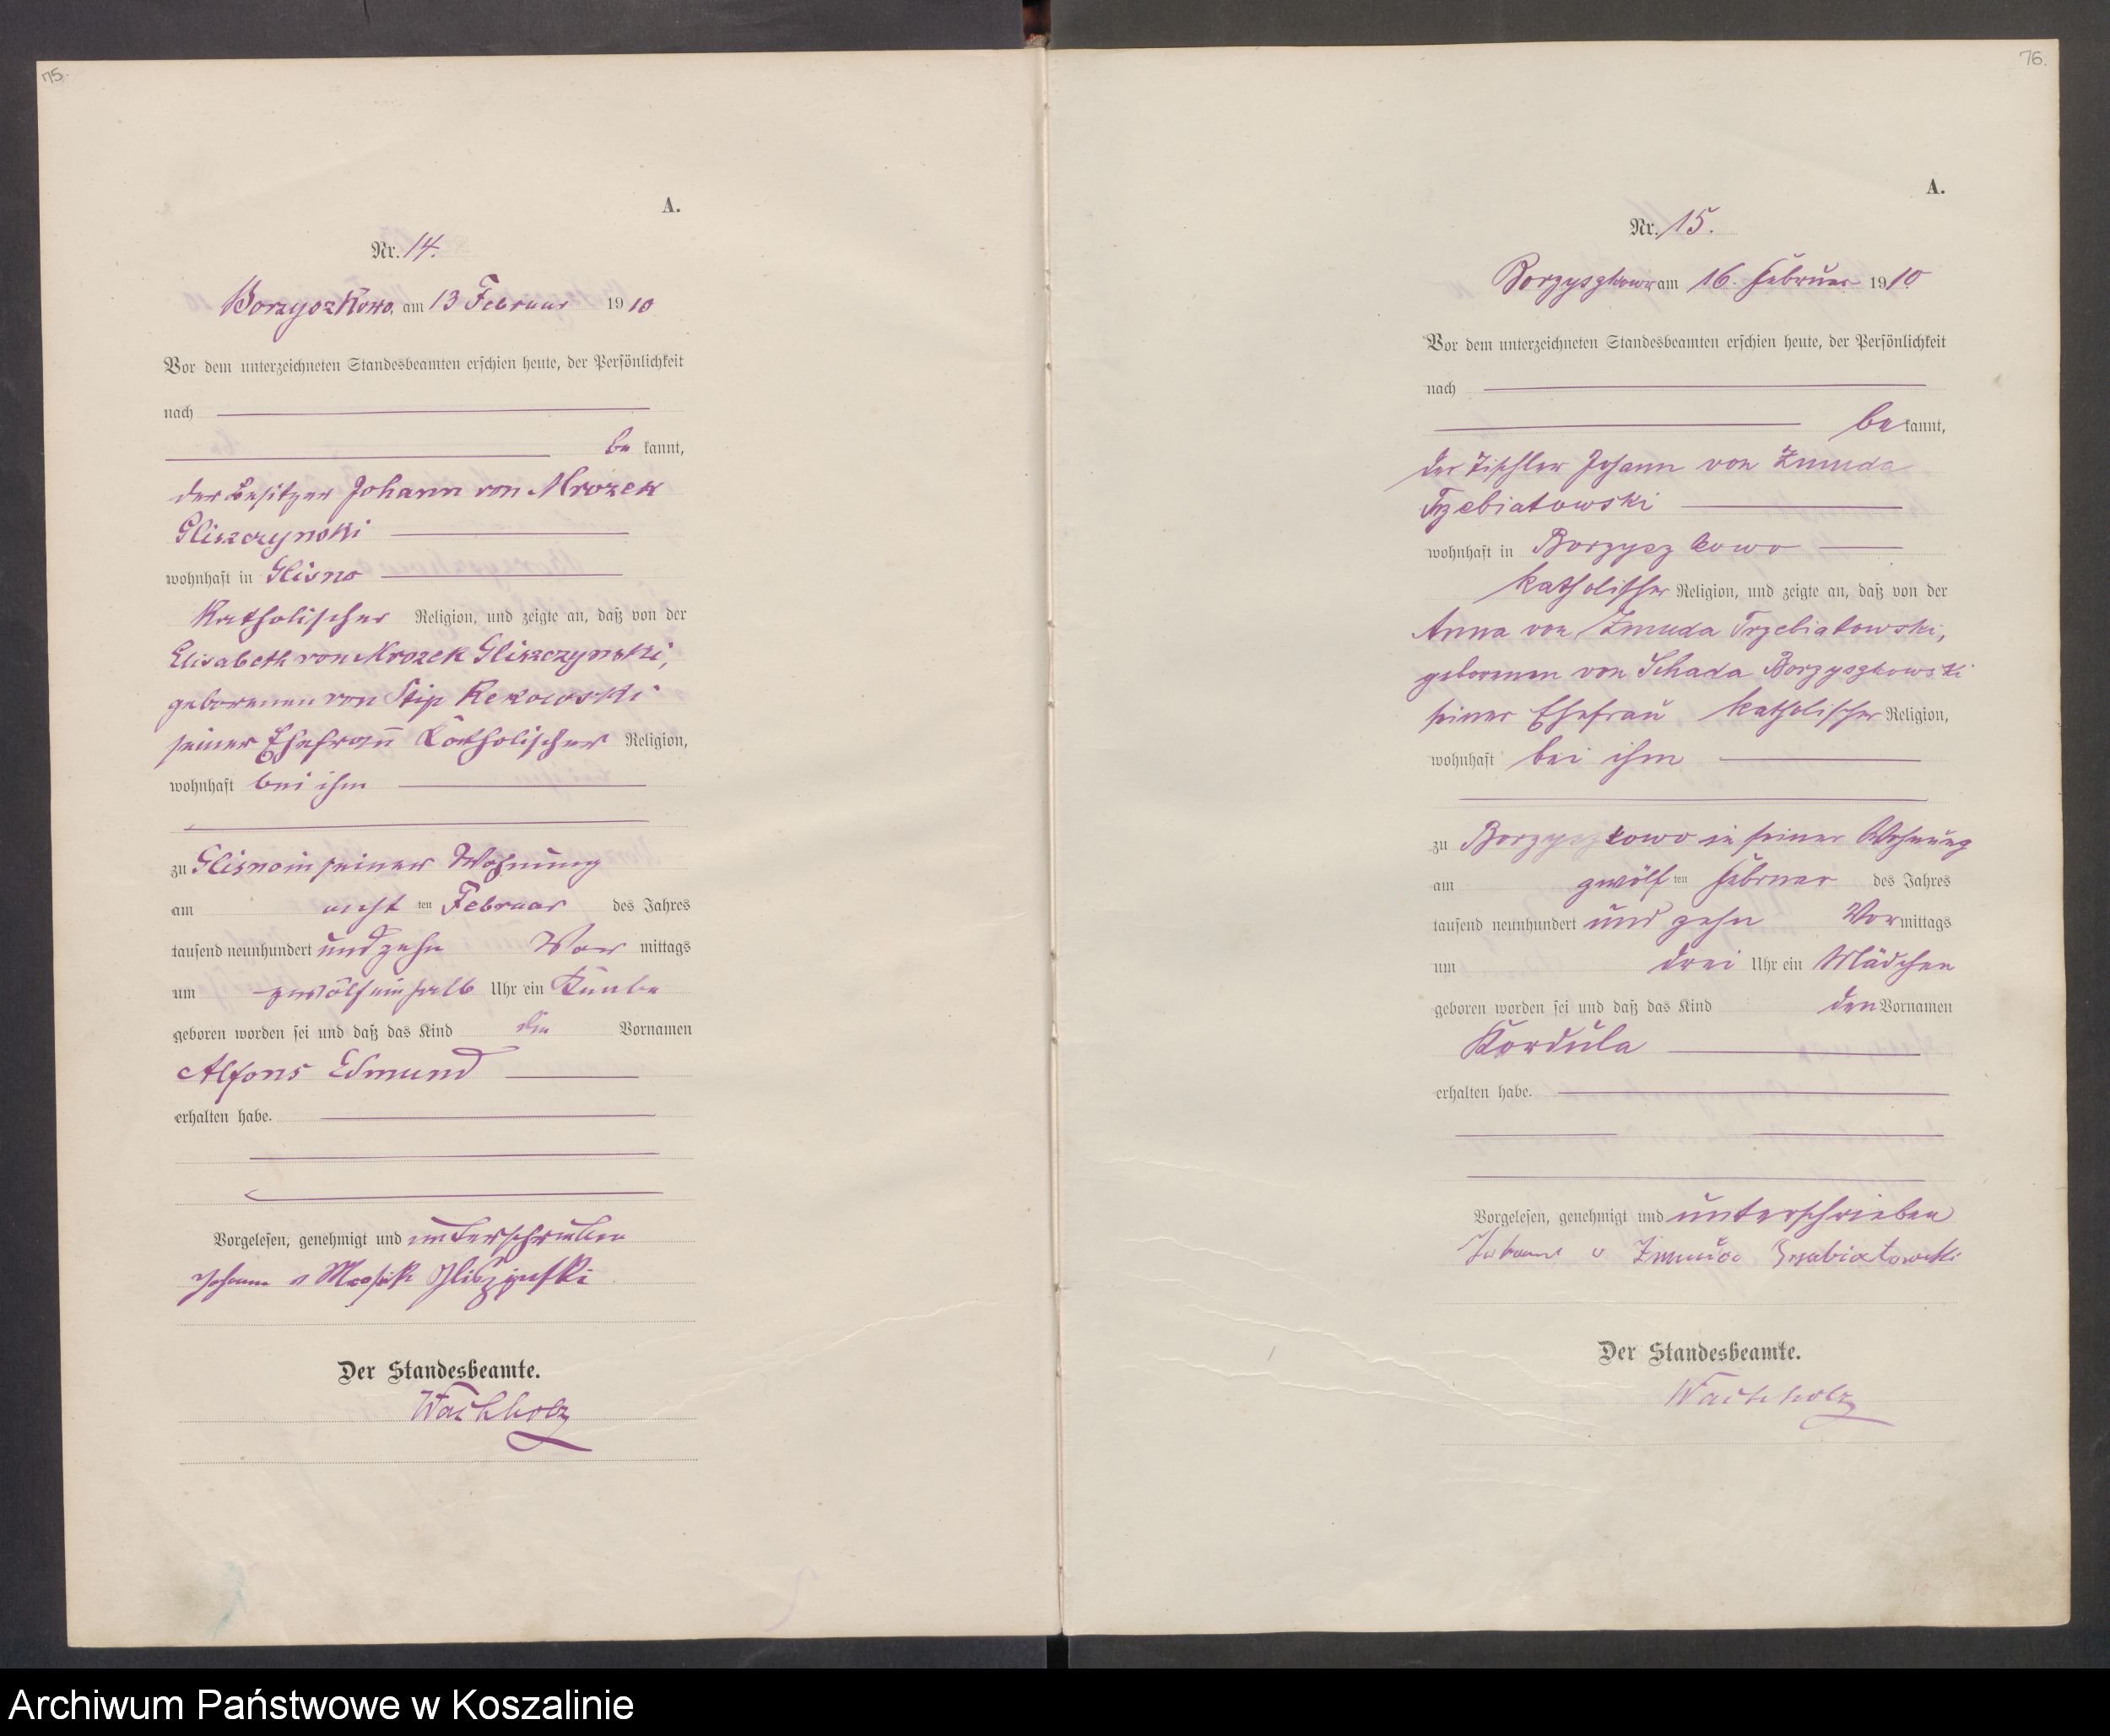 75.
A.
Nr. 14.
Borzyszkowo, am 13 Februar 1910
Vor dem unterzeichneten Standesbeamten erschien heute, der Persönlichkeit
nach
be kannt,
der Besitzer Johann von Mrozek
Gliszczynski
wohnhaft in Glisno
katholischer Religion, und zeigte an, daß von der
Elisabeth von Mrozek Gliszczynski,
geborenen von Stip Rekowski
seiner Ehefrau katholischer Religion,
wohnhaft bei ihm
zu Glisno in seiner Wohnung
am acht ten Februar des Jahres
tausend neunhundert und zehn Vor mittags
um zwölfeinhalb Uhr ein Knabe
geboren worden sei und daß das Kind den Vornamen
Alfons Edmund
erhalten habe.
Vorgelesen, genehmigt und unterschrieben
Johann v Mrosik Gliszinski
Der Standesbeamte.
Wachholz
76.
A.
Nr. 15.
Borzyszkowo am 16. Februar 1910.
Vor dem unterzeichneten Standesbeamten erschien heute, der Persönlichkeit
nach
be kannt,
der Tischler Johann von Zmuda
Trzebiatowski
wohnhaft in Borzyszkowo
katholischer Religion, und zeigte an, daß von der
Anna von Zmuda Trzebiatowski,
geborenen von Schada Borzyszkowski
seiner Ehefrau katholischer Religion,
wohnhaft bei ihm
zu Borzyszkowo in seiner Wohnung
am zwölf ten Februar des Jahres
tausend neunhundert und zehn Vormittags
um drei Uhr ein Mädchen
geboren worden sei und daß das Kind den Vornamen
Kordula
erhalten habe.
Vorgelesen, genehmigt und unterschrieben
Johann v Zmuda Trzabiatowski
Der Standesbeamte.
Wachholz
Archiwum Państwowe w Koszalinie